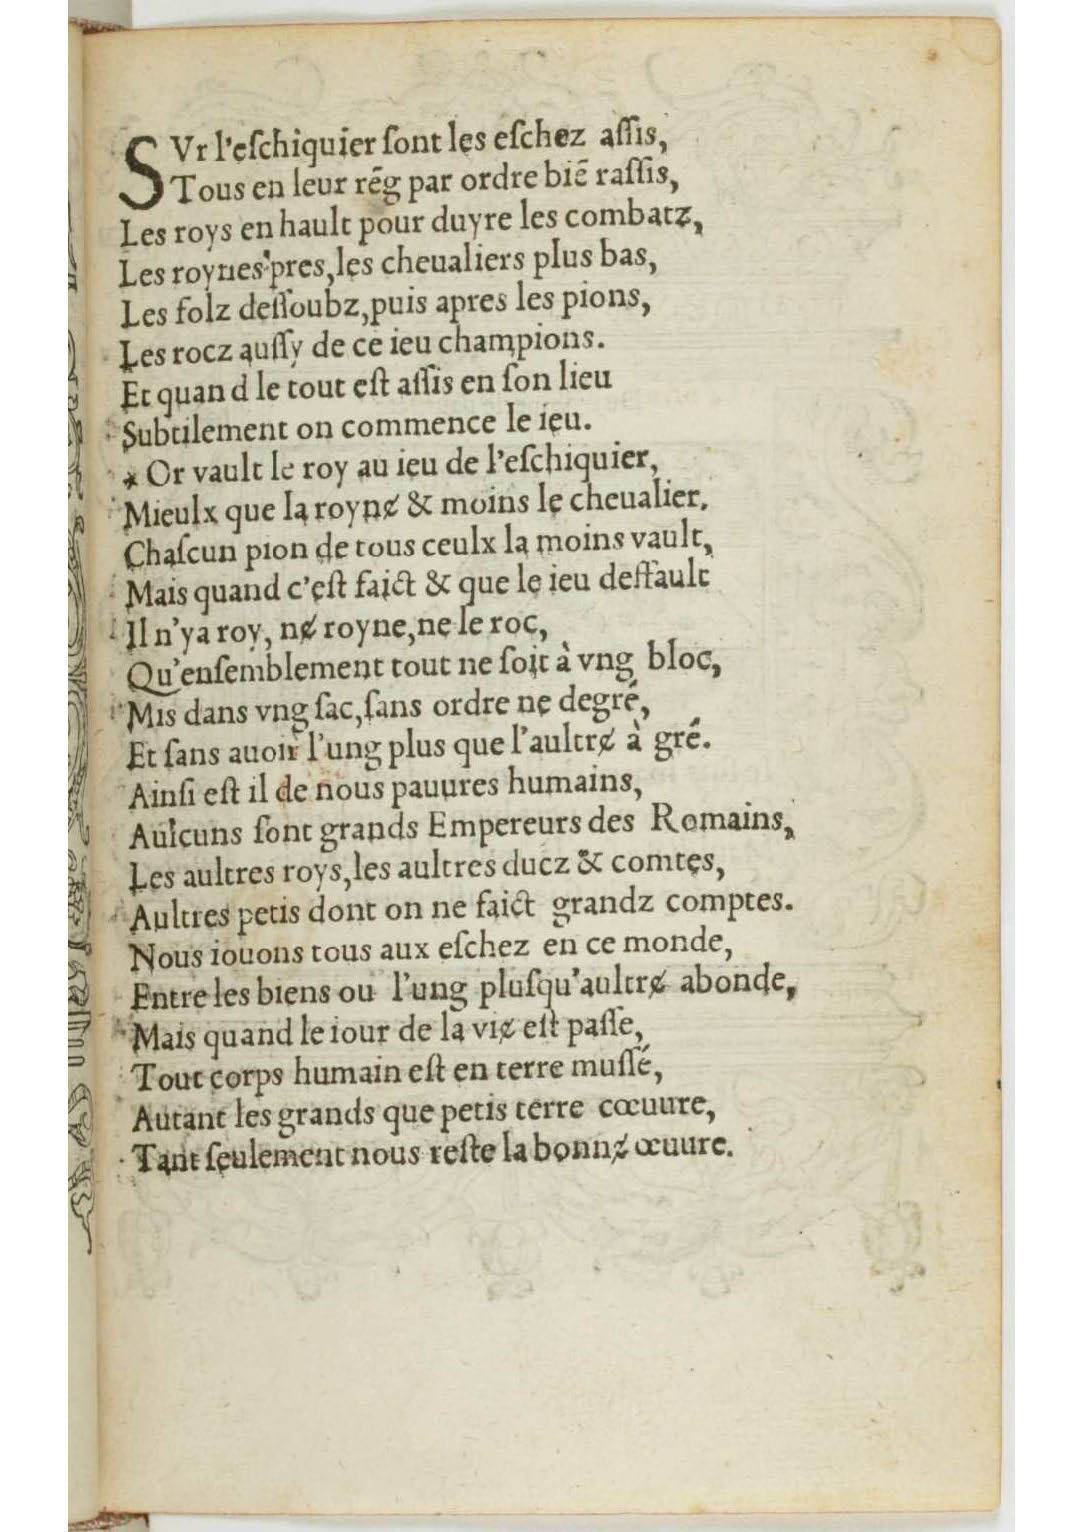 SVr l'eſchiquier ſont les eſchez aſſis,
Tous en leur rẽg par ordre biẽ raſſis,
Les roys en hault pour duyre les combatz,
Les roynes pres, les cheualiers plus bas,
Les folz deſſoubz, puis apres les pions,
Les rocz auſſy de ce ieu champions.
Et quand le tout eſt aſſis en ſon lieu
Subtilement on commence le ieu.
* Or vault le roy au ieu de l'eſchiquier,
Mieulx que la roynɇ & moins le cheualier.
Chaſcun pion de tous ceulx la moins vault,
Mais quand c'eſt faict & que le ieu deffault
Il n'ya roy, nɇ royne, ne le roc,
Qu'enſemblement tout ne ſoit à vng bloc,
Mis dans vng ſac, ſans ordre ne degré,
Et ſans auoir l'ung plus que l'aultrɇ à gré.
Ainſi eſt il de nous pauures humains,
Aulcuns ſont grands Empereurs des Romains,
Les aultres roys, les aultres ducz & comtes,
Aultres petis dont on ne faict grandz comptes.
Nous iouons tous aux eſchez en ce monde,
Entre les biens ou l'ung pluſqu'aultrɇ abonde,
Mais quand le iour de la viɇ eſt paſſe,
Tout corps humain eſt en terre muſſé,
Autant les grands que petis terre cœuure,
Tant ſeulement nous reſte la bonnɇ œuure.